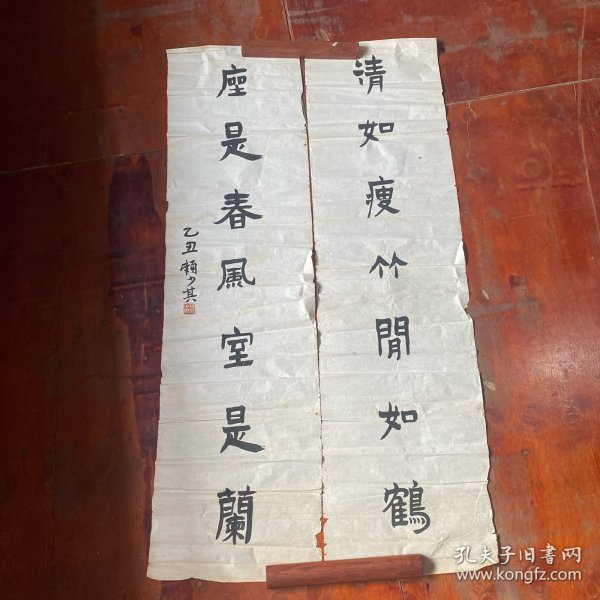 清如瘦竹閒如鶴
座是春風室是蘭
乙丑賴少其
孔夫子旧書网
www.kongfz.com